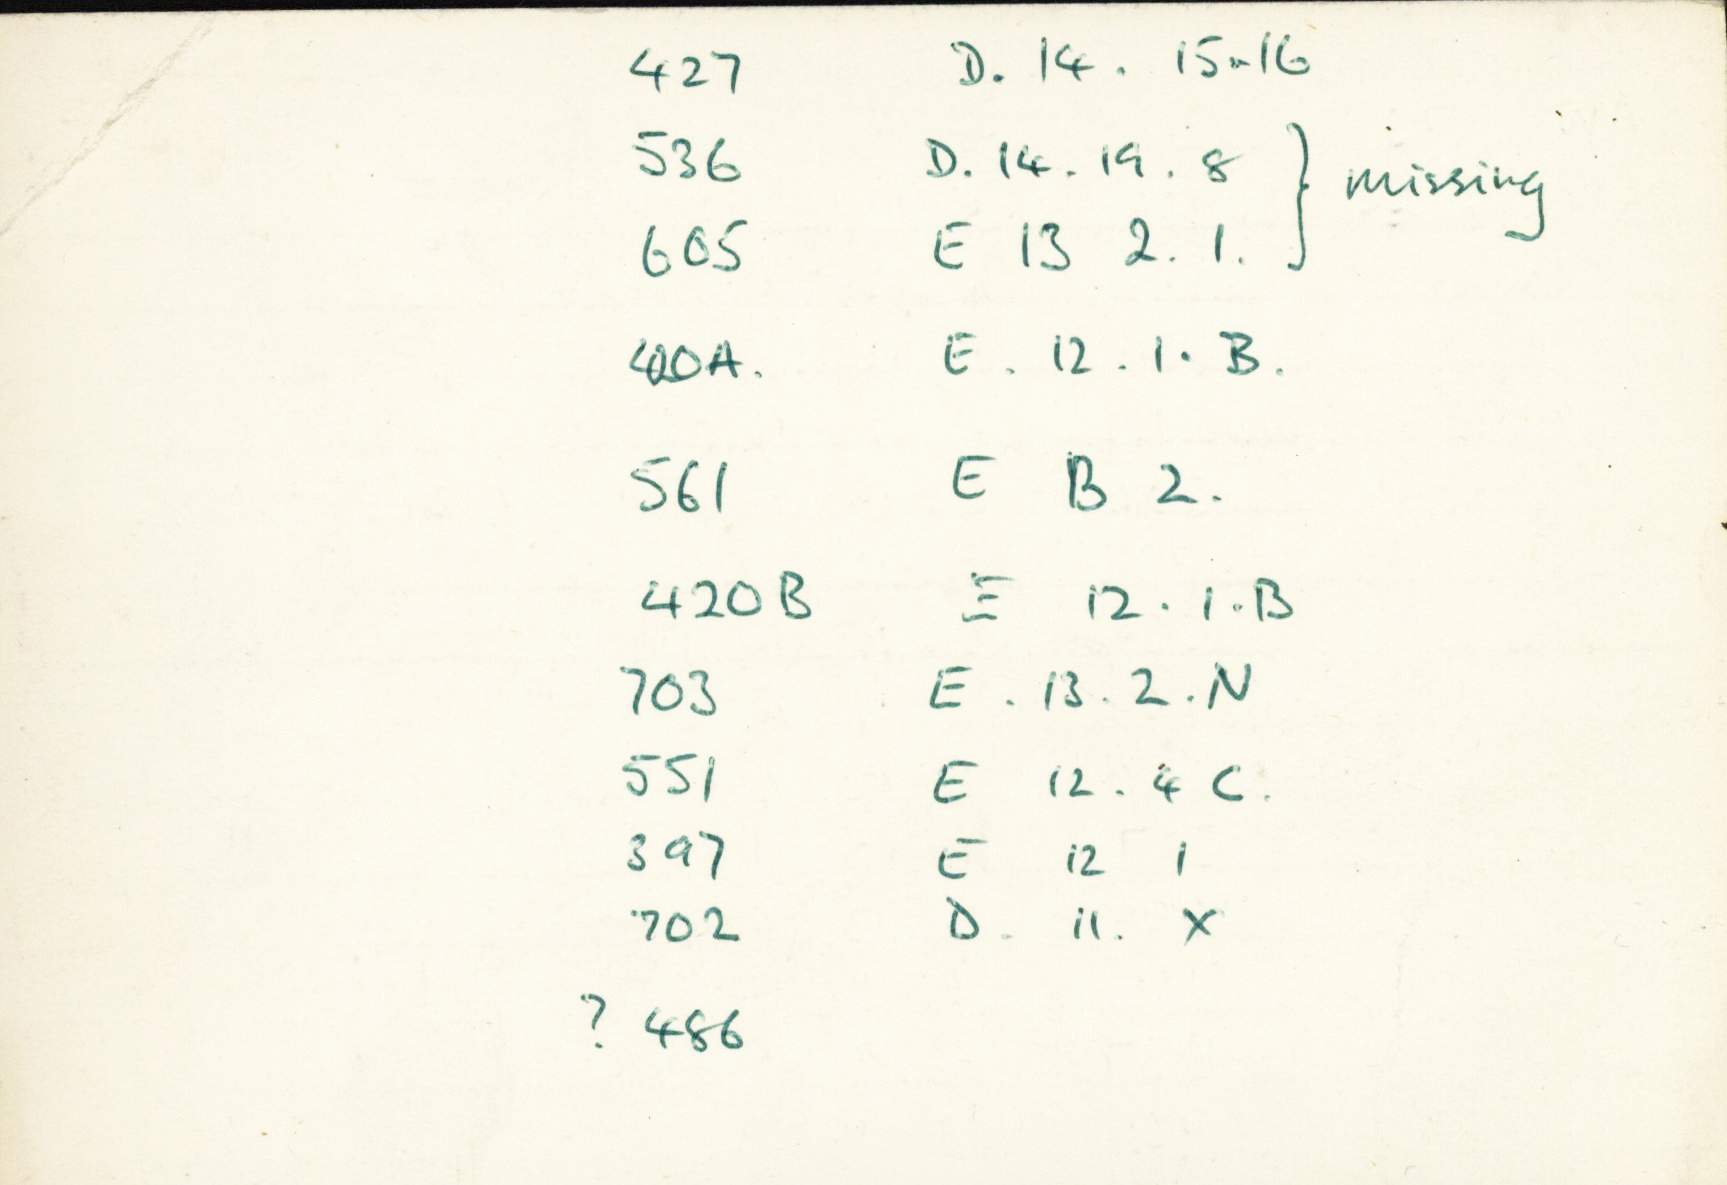 427 D. 14. 15-16
536 D. 14. 19. 8 } missing
605 E 13 2. 1.
420A. E. 12. 1. B.
561 E B 2.
420B E 12. 1. B
703 E. 13. 2. N
551 E 12. 4 C.
397 E 12 1
702 D. 11. X
? 486